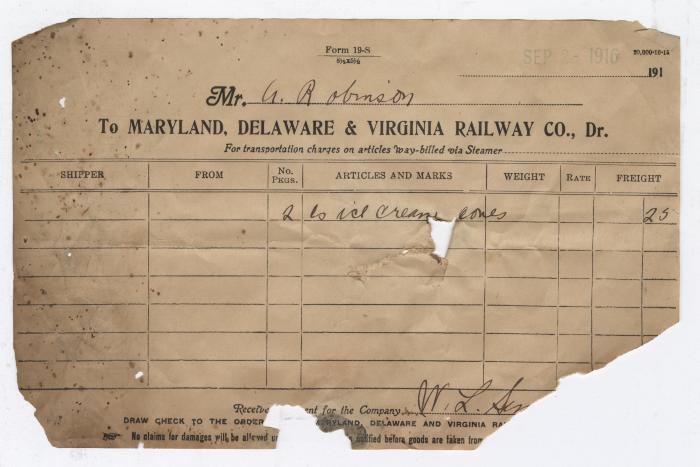 Form 19-S
5½x8½
20,000-10-15
SEP 2 - 1916
191
Mr. A. Robinson
To MARYLAND, DELAWARE & VIRGINIA RAILWAY CO., Dr.
For transportation charges on articles way-billed via Steamer
SHIPPER FROM No. Pkgs. ARTICLES AND MARKS WEIGHT RATE FREIGHT
2 bs ice cream cones 25
Receive ent for the Company W. L.
DRAW CHECK TO THE ORDER RYLAND, DELAWARE AND VIRGINIA RA
No claims for damages will be allowed un notified before goods are taken from